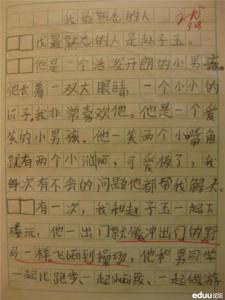 我最熟悉的人
我最熟悉的人是赵子玉。
他是一个活发开朗的小男孩。
他长着一双大眼睛，一个小小的
我非常喜欢他。他是一个爱
笑的小男孩。他一笑两个小嘴角
就有两个小酒涡，可爱极了，我
每次有不会的问题他都帮我解决。
有一次，我和赵子玉一起下
楼玩，他一出门就像冲出们的野
马一样飞
到操场，他和男同学
一起比跑步、一起
、一起做游
eduu